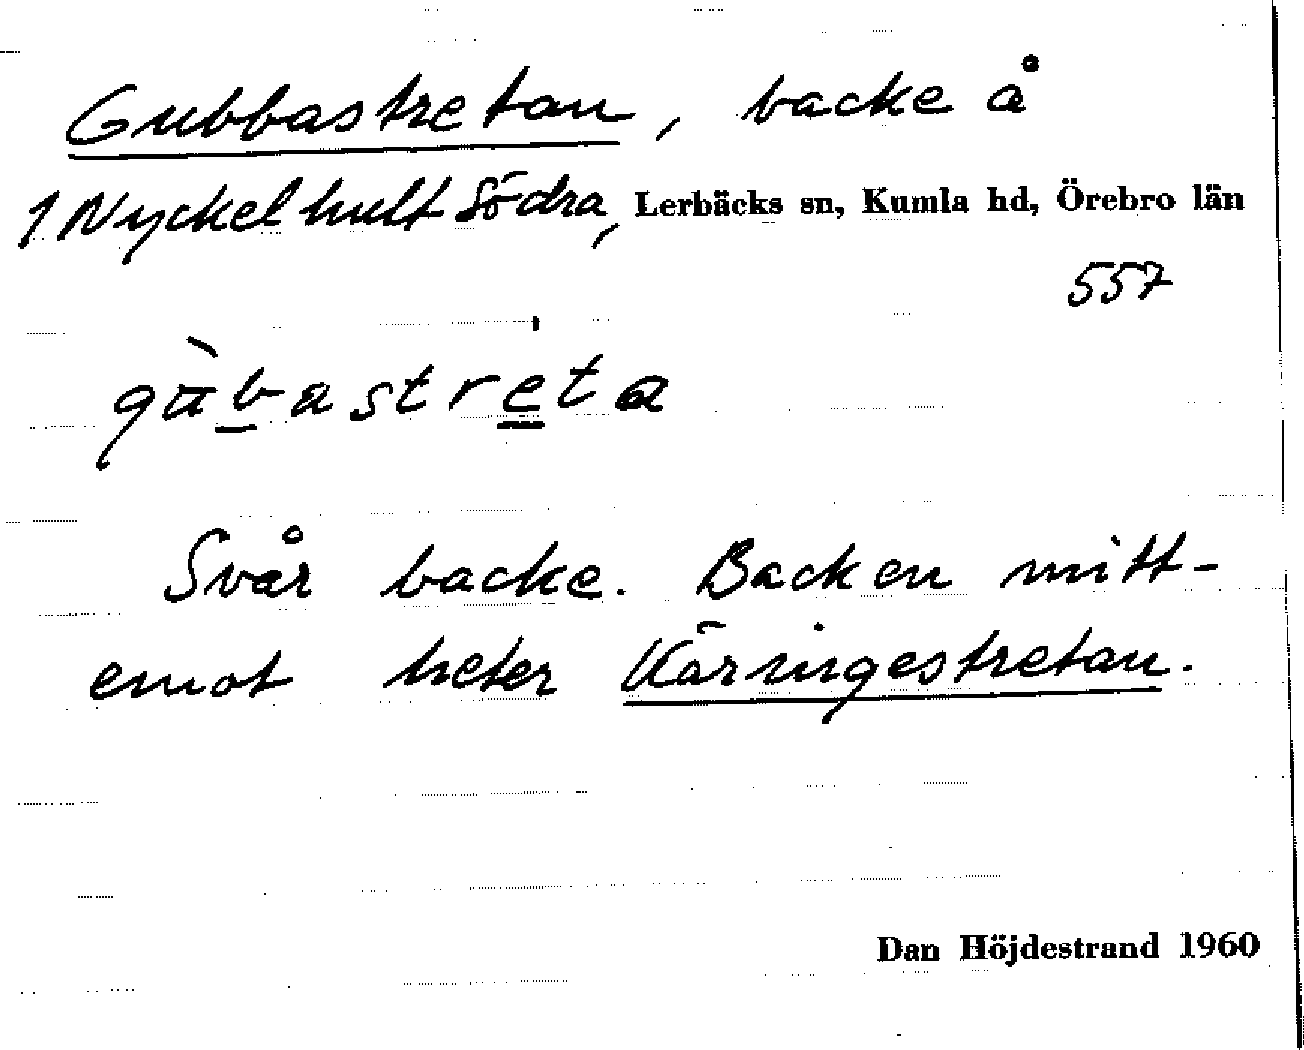 Gubbastretan, backe å
1 Nyckelhult Södra, Lerbäcks sn, Kumla hd, Örebro län
557
gùbastreta
Svår backe. Backen mitt-
emot heter Käringestretan.
Dan Höjdestrand 1960